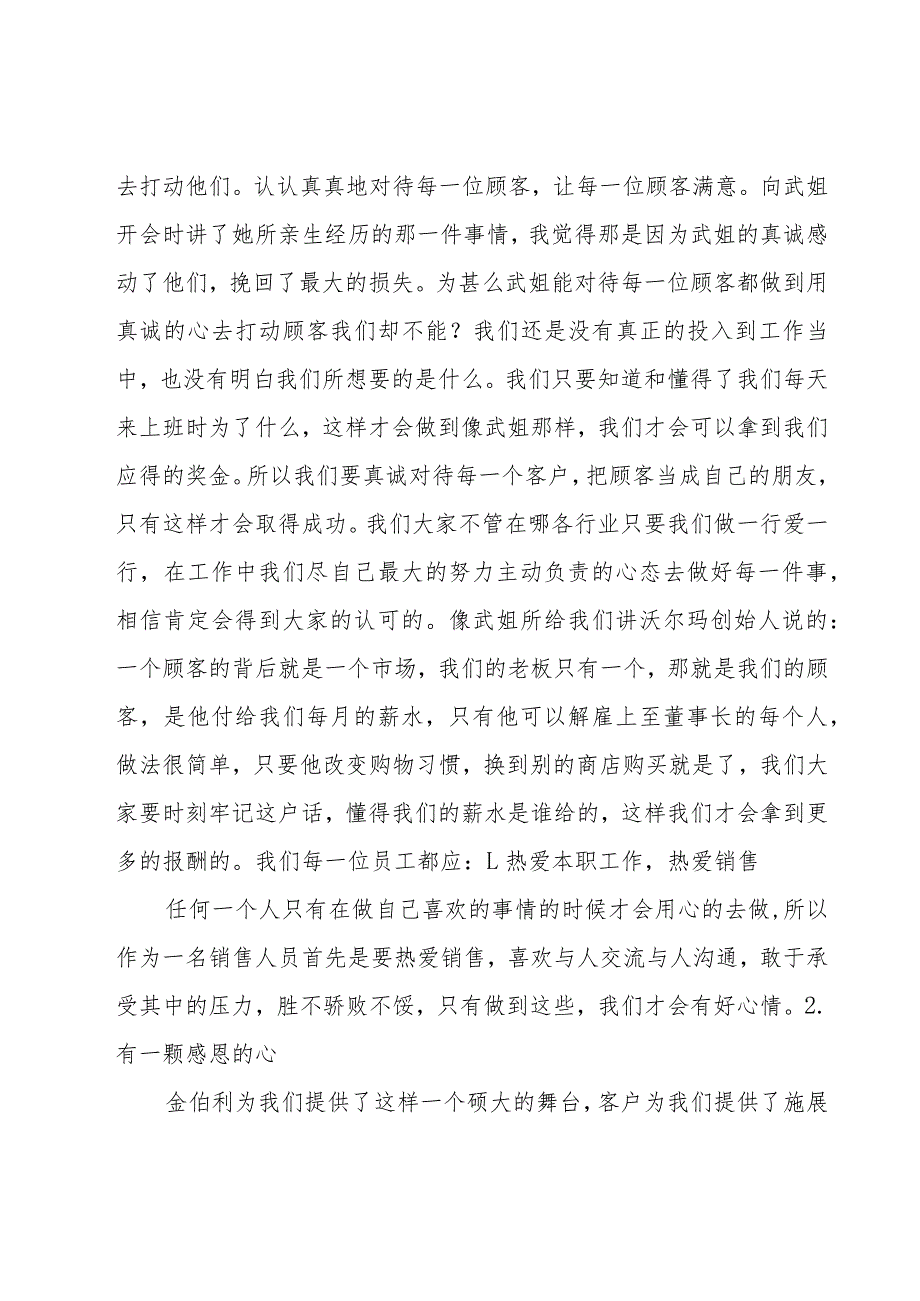 去打动他们。认认真真地对待每一位顾客，让每一位顾客满意。向武姐
开会时讲了她所亲生经历的那一件事情，我觉得那是因为武姐的真诚感
动了他们，挽回了最大的损失。为甚么武姐能对待每一位顾客都做到用
真诚的心去打动顾客我们却不能？我们还是没有真正的投入到工作当
中，也没有明白我们所想要的是什么。我们只要知道和懂得了我们每天
来上班时为了什么，这样才会做到像武姐那样，我们才会可以拿到我们
应得的奖金。所以我们要真诚对待每一个客户，把顾客当成自己的朋友，
只有这样才会取得成功。我们大家不管在哪各行业只要我们做一行爱一
行，在工作中我们尽自己最大的努力主动负责的心态去做好每一件事，
相信肯定会得到大家的认可的。像武姐所给我们讲沃尔玛创始人说的：
一个顾客的背后就是一个市场，我们的老板只有一个，那就是我们的顾
客，是他付给我们每月的薪水，只有他可以解雇上至董事长的每个人，
做法很简单，只要他改变购物习惯，换到别的商店购买就是了，我们大
家要时刻牢记这户话，懂得我们的薪水是谁给的，这样我们才会拿到更
多的报酬的。我们每一位员工都应：L热爱本职工作，热爱销售
任何一个人只有在做自己喜欢的事情的时候才会用心的去做,所以
作为一名销售人员首先是要热爱销售，喜欢与人交流与人沟通，敢于承
受其中的压力，胜不骄败不馁，只有做到这些，我们才会有好心情。2.
有一颗感恩的心
金伯利为我们提供了这样一个硕大的舞台，客户为我们提供了施展